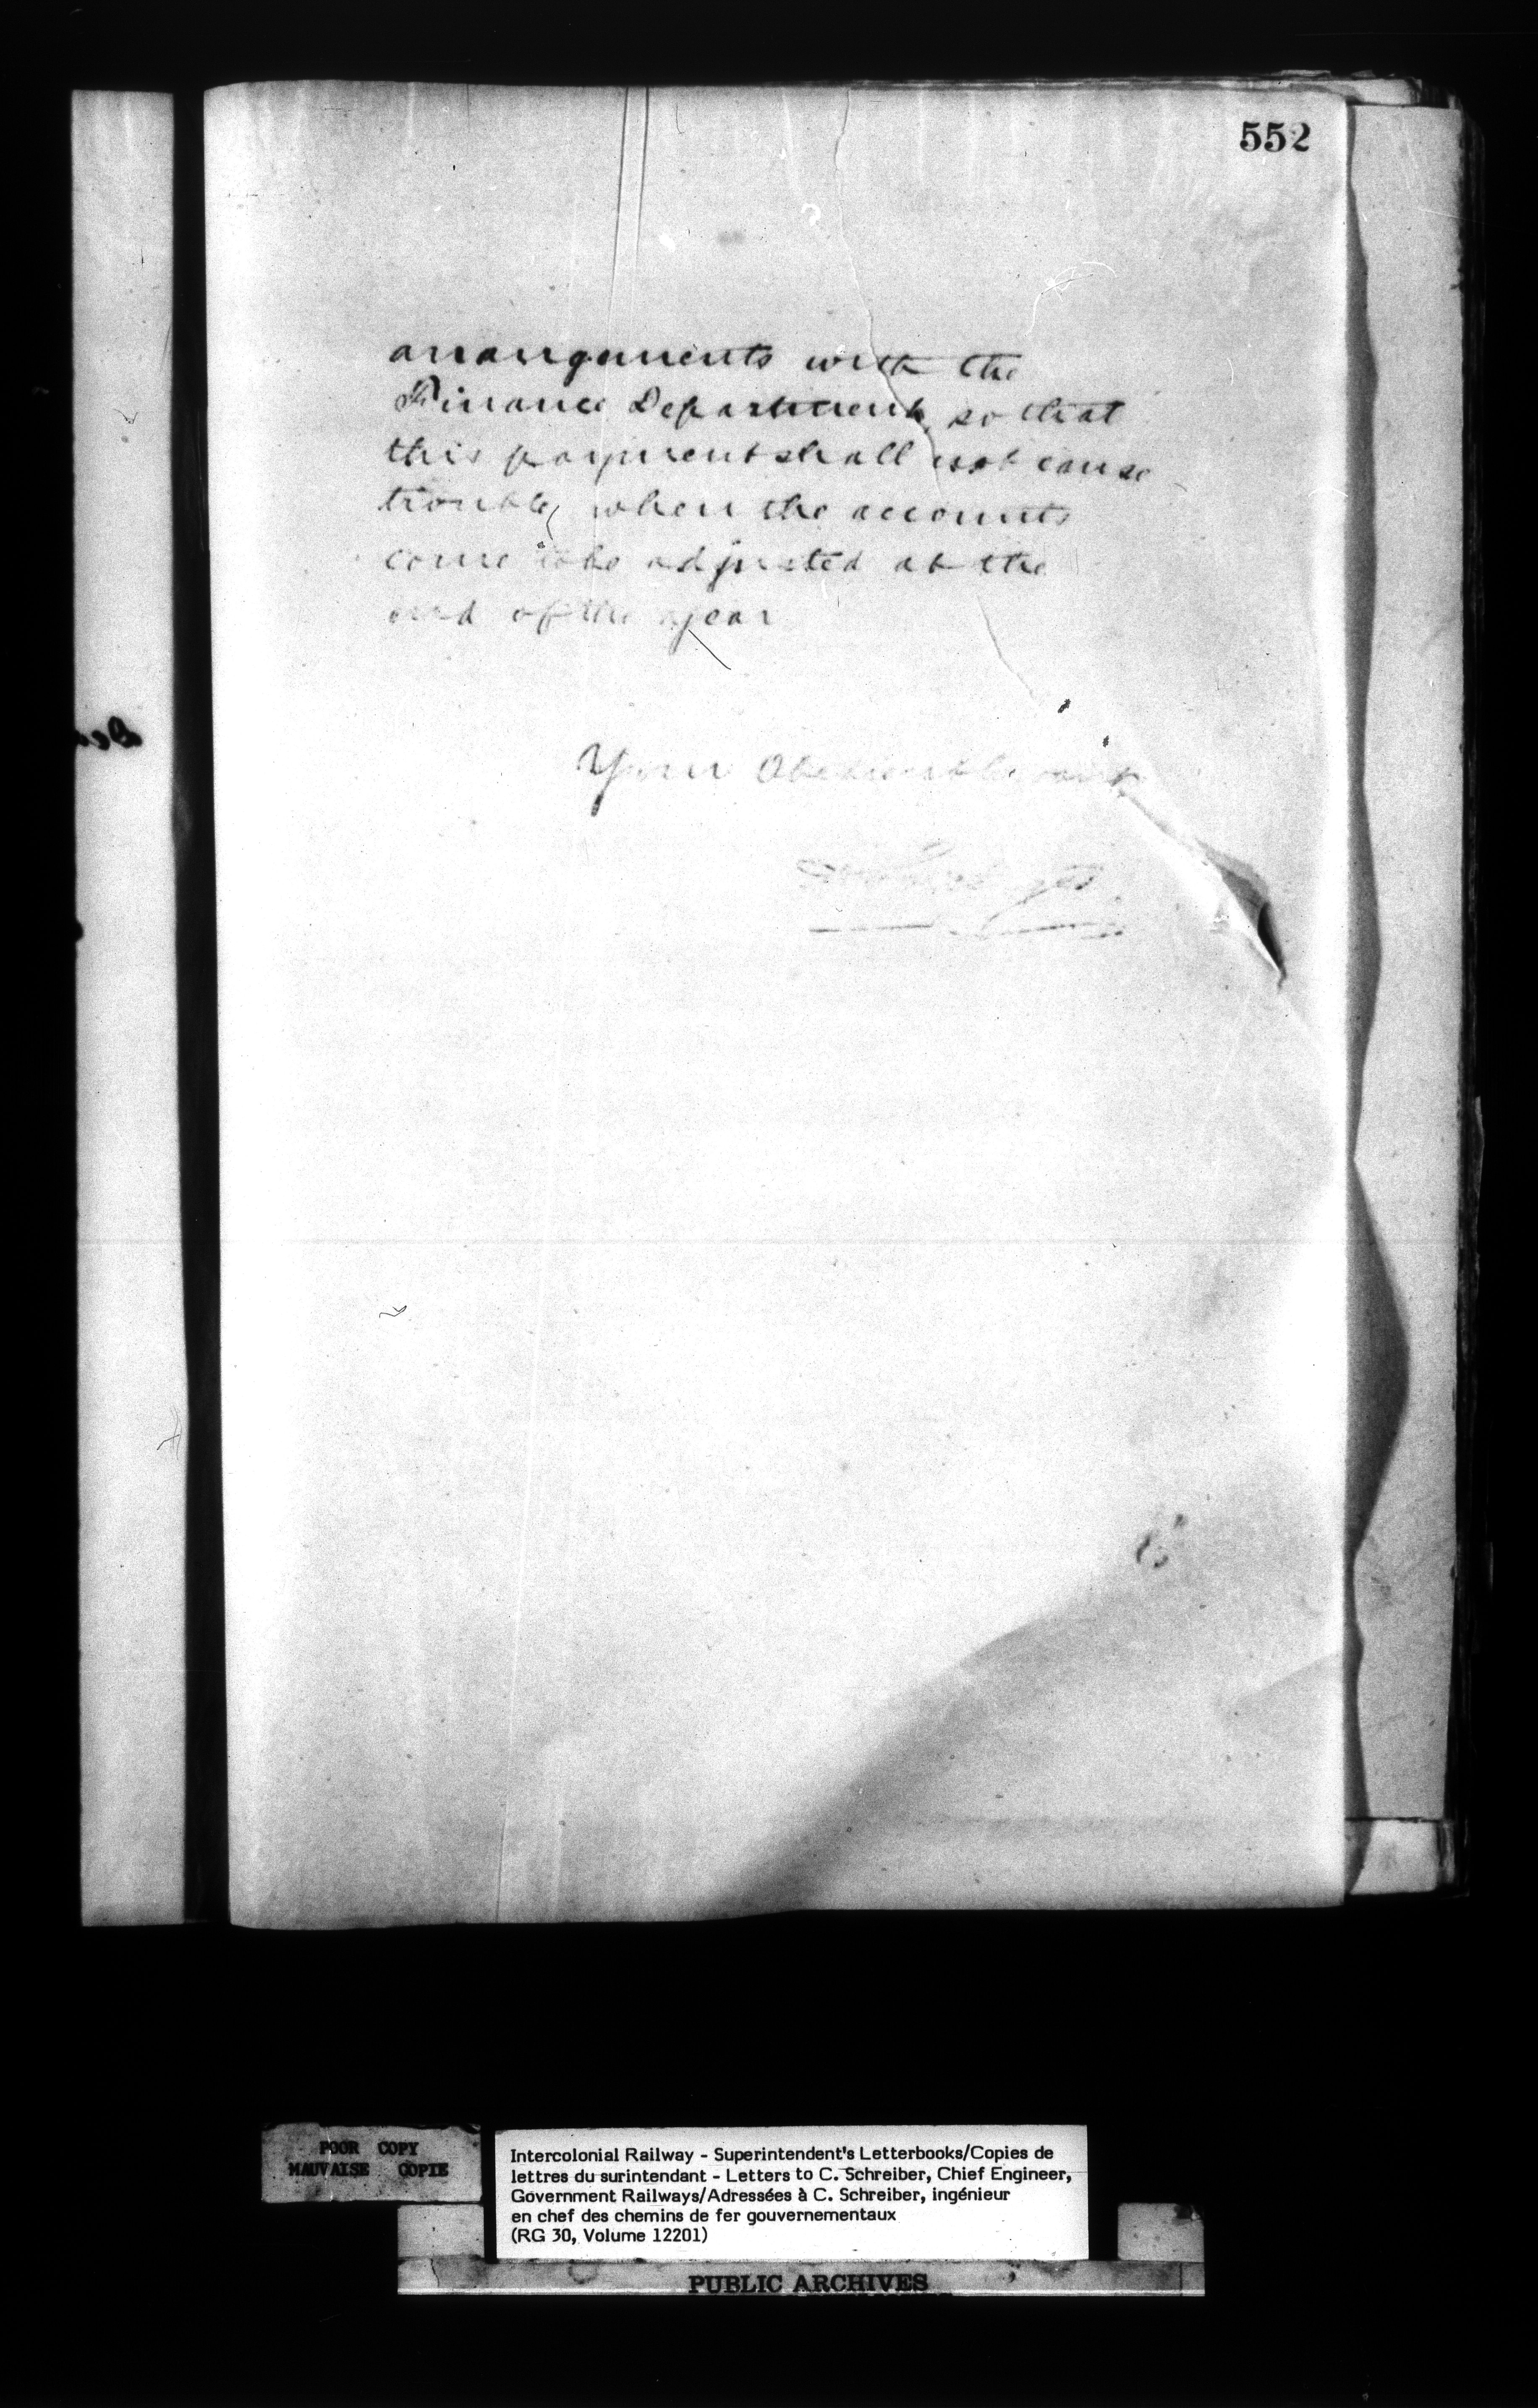 552
arrangements with the
Finance Department, so that
this payment shall not cause
trouble, when the accounts
come to be adjusted at the
end of the year
Your Obedient Servant
POOR COPY
MAUVAISE COPIE
Intercolonial Railway - Superintendent's Letterbooks/Copies de
lettres du surintendant - Letters to C. Schreiber, Chief Engineer,
Government Railways/Adressées à C. Schreiber, ingénieur
en chef des chemins de fer gouvernementaux
(RG 30, Volume 12201)
PUBLIC ARCHIVES